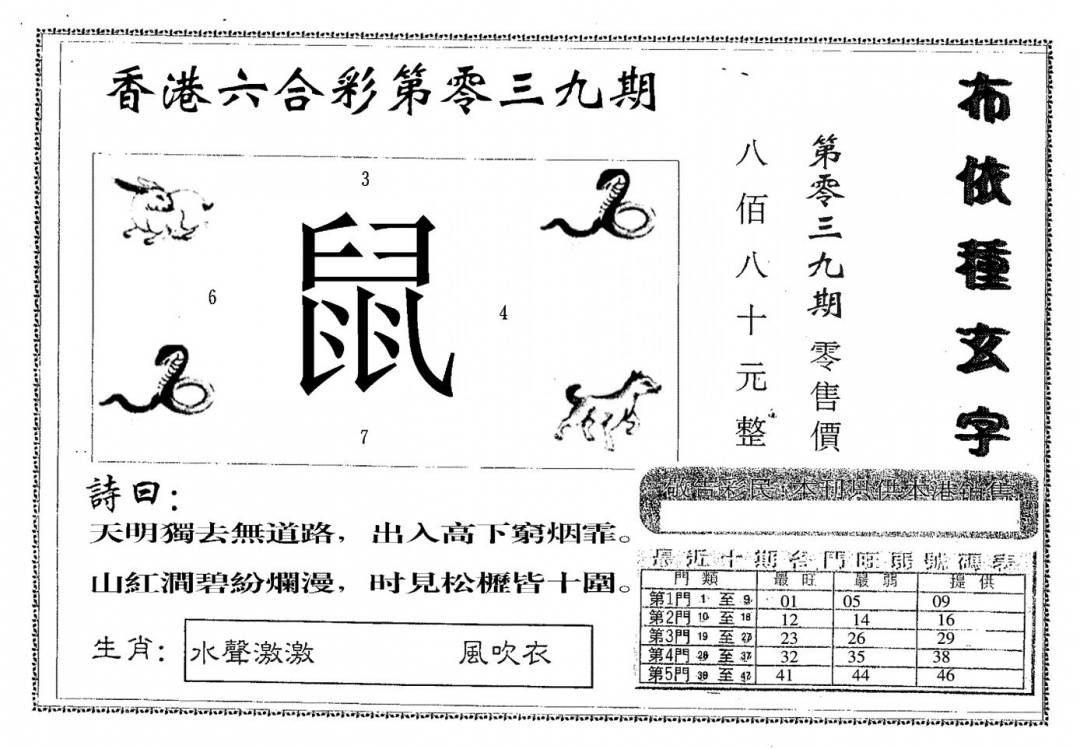 香港六合彩第零三九期
布依種玄字
第零三九期零售價
八佰八十元整
3
鼠
6
4
7
詩曰：
天明獨去無道路，出入高下窮烟霏。
山紅澗碧紛爛漫，时見松櫪皆十圍。
生肖：水聲激激 風吹衣
敬告彩民：本刊只供本港銷售
最近十期各門旺弱號碼表
門類 最旺 最弱 提供
第1門 1 至 9 01 05 09
第2門 10 至 18 12 14 16
第3門 19 至 27 23 26 29
第4門 28 至 37 32 35 38
第5門 38 至 47 41 44 46